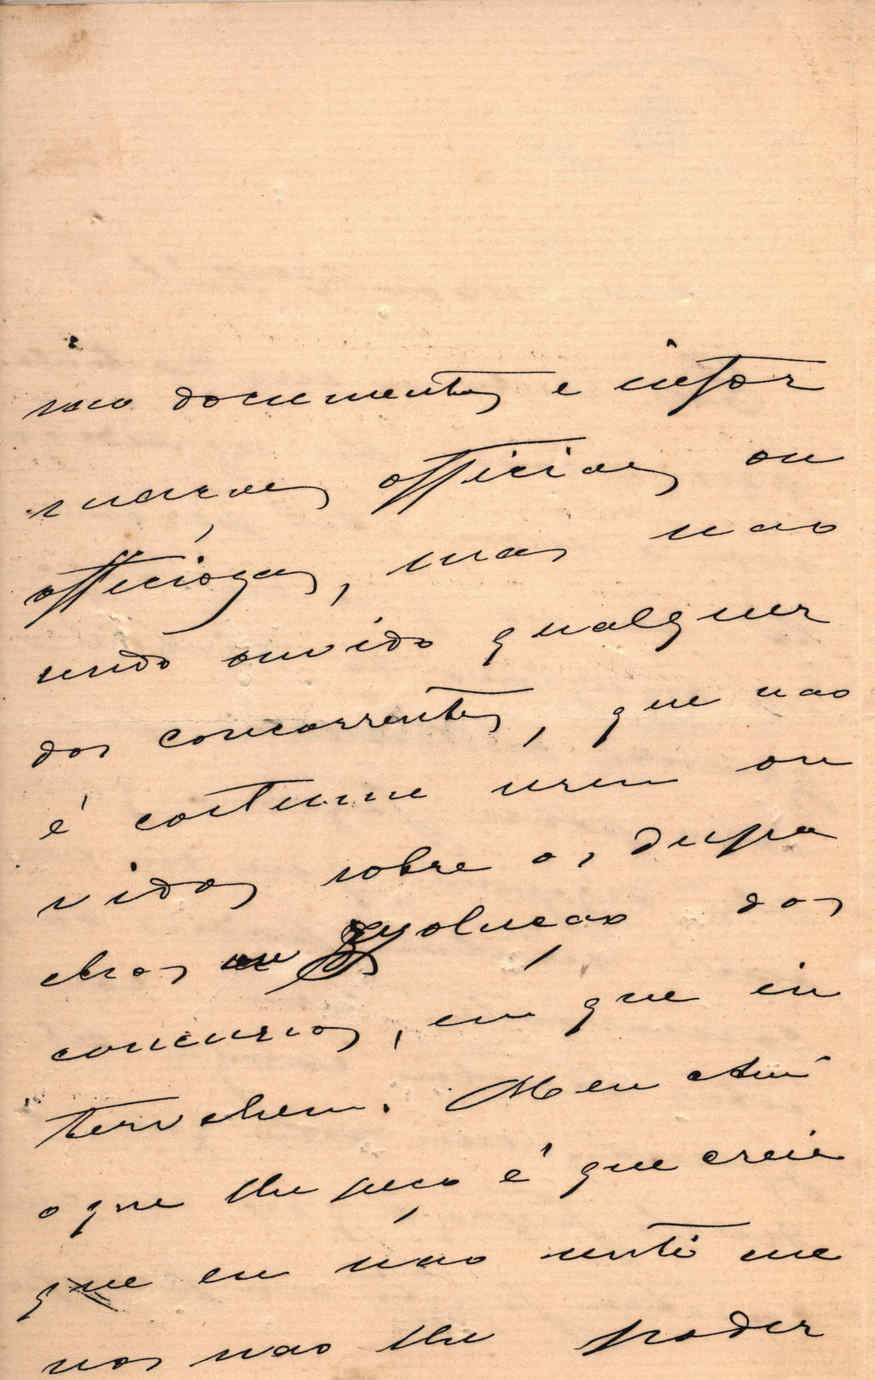 mo documentos e infor
mações officiaes ou
officiosas, mas não
sendo ouvido qualquer
dos concorrentes, que nao
é costume serem ou
vidos sobre os despa
chos ou resolução dos
concursos, em que in
tervehem. Meu Am.
o que lhe peço é que creia
que eu não senti me
nos nao lhe poder